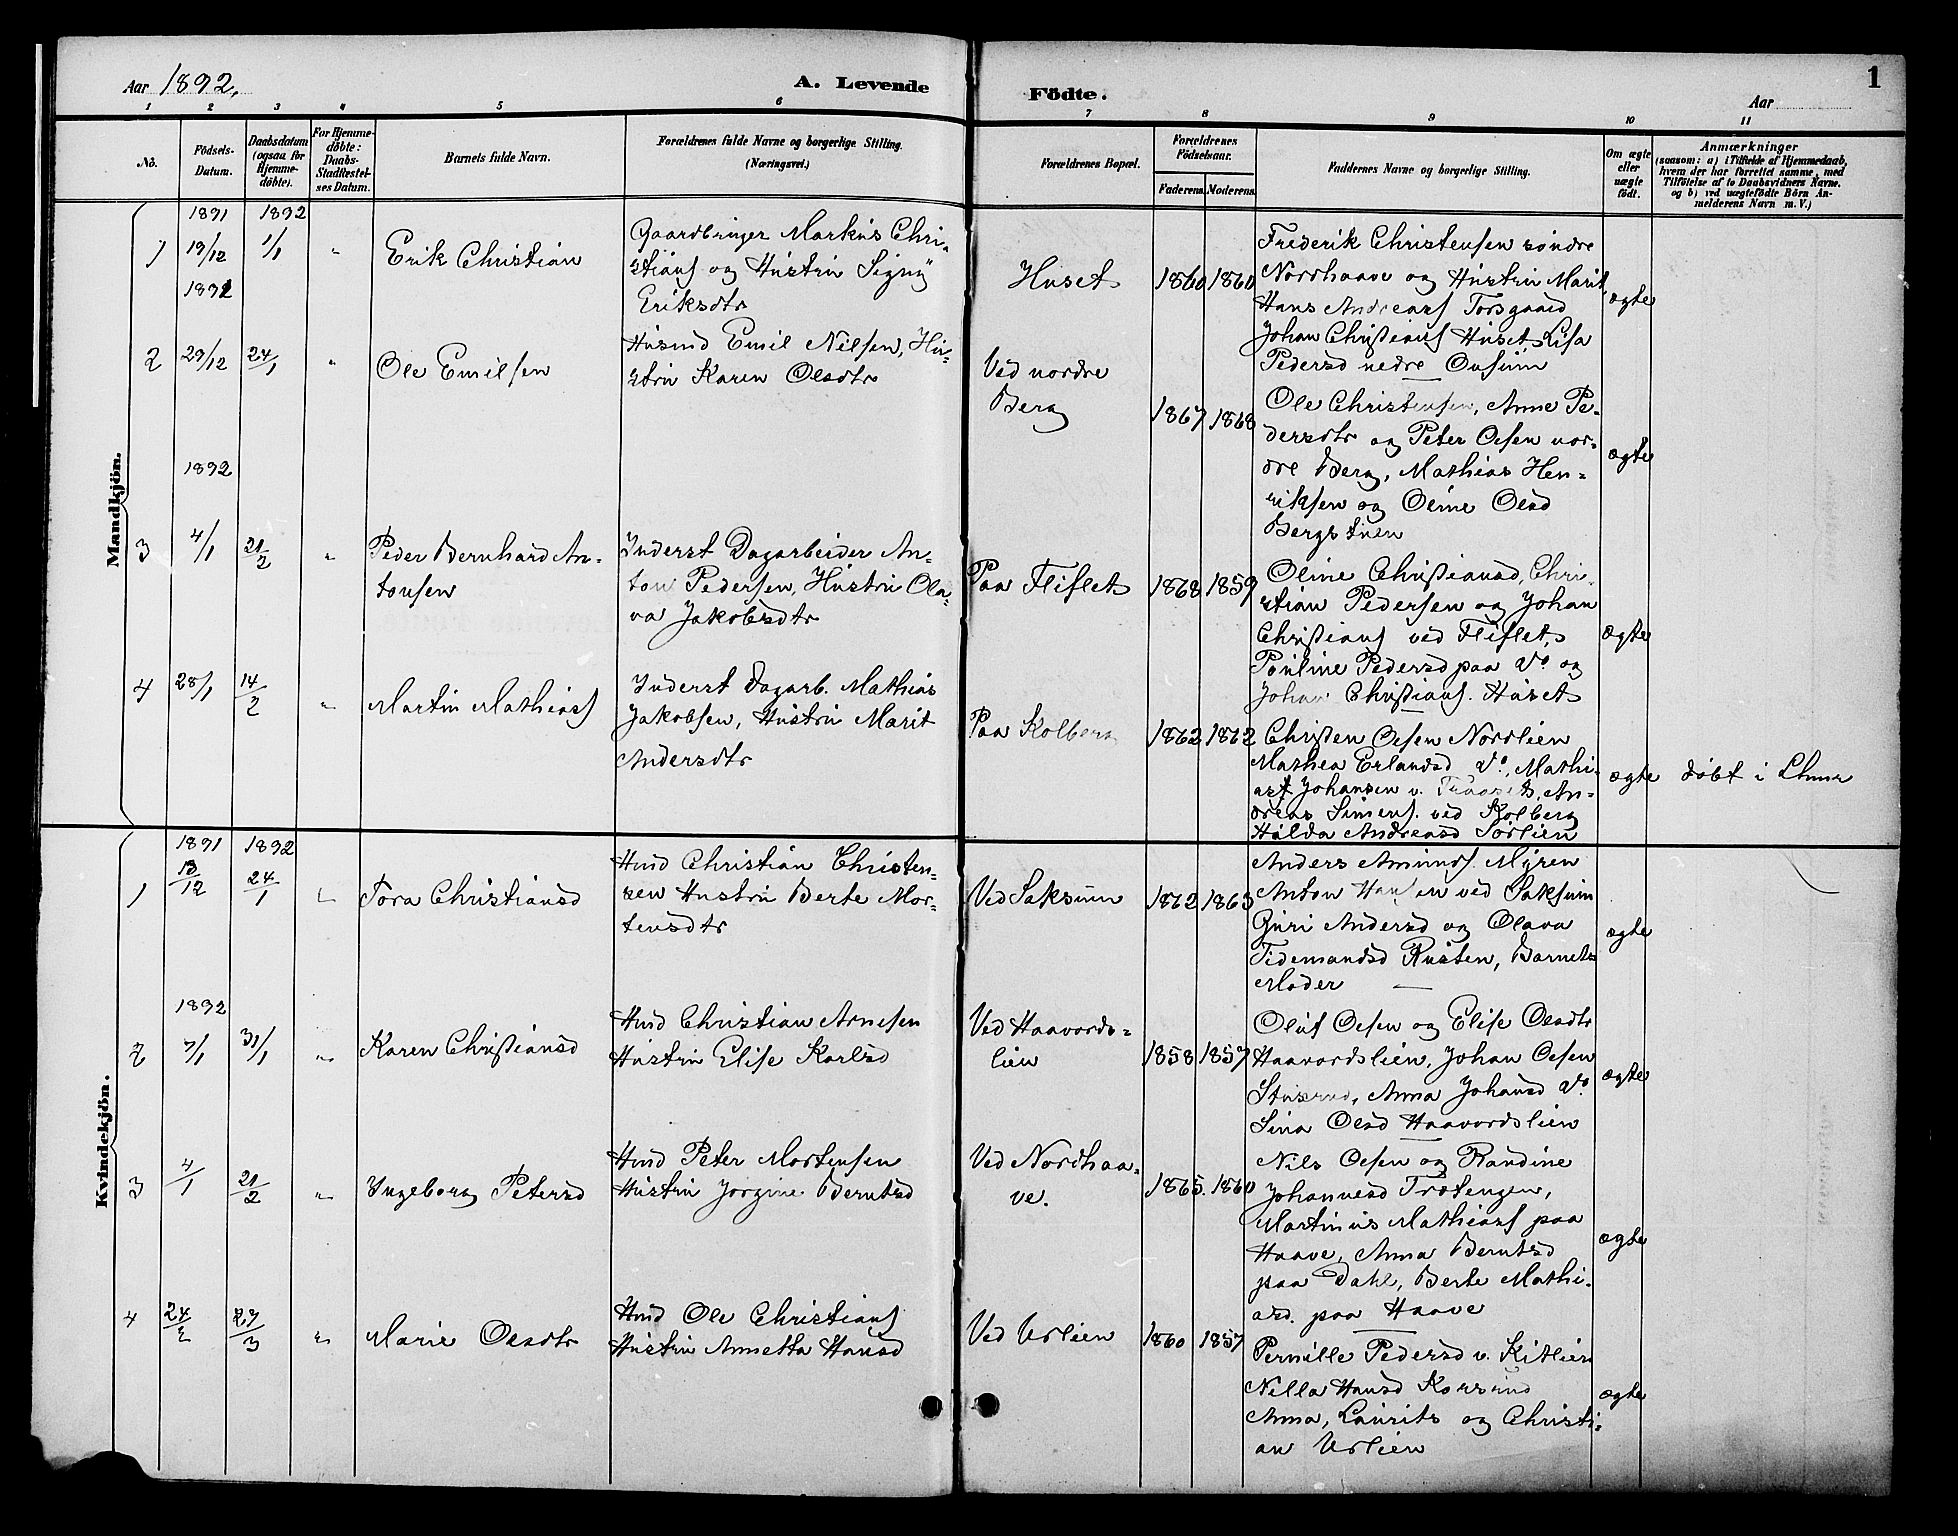 Aar 1892.
A. Levende
Födte.
Aar
1
1 2 3 4 5 6 7 8 9 10 11
No.
Födsels-
Datum.
Daabsdatum
(ogsaa for
Hjemme-
döbte).
For Hjemme-
döbte:
Daabs-
Stadfæstel-
ses Datum.
Barnets fulde Navn.
Forældrenes fulde Navne og borgerlige Stilling.
(Næringsvei.)
Forældrenes Bopæl.
Forældrenes
Födselsaar.
Faderens. Moderens.
Faddernes Navne og borgerlige Stilling.
Om ægte
eller
uægte
født.
Anmærkninger
(saasom: a) i Tilfælde af Hjemmedaab,
hvem der har forrettet samme, med
Tilföielse af to Daabsvidners Navne.
og b) ved uægtefödte Börn An-
melderens Navn m. V.)
Mandkjön.
1
1891
19/12
1892
1/1
"
Erik Christian
Gaardbruger Markus Chri-
stians og Hustru Signÿ
Eriksdtr
Huset
1860 1860
Frederik Christensen søndre
Nordhaave og Hustru Marit,
Hans Andreas Torsgaard
Johan Christians Huset Lisa
Pedersd nedre Ousum
ægte
2
1891
29/12
24/1
"
Ole Emilsen
Husmd Emil Nilsen, Hu-
stru Karen Olsdtr
Ved nordre
Berg
1867 1868
Ole Christensen, Anne Pe-
dersdtr og Peter Olsen nor-
dre Berg, Mathias Hen-
riksen og Oline Olsd
Bergstuen
ægte
3
1892
4/1
21/2
"
Peder Bernhard An-
tonsen
Inderst Dagarbeider An-
ton Pedersen, Hustru Ola-
va Jakobsdtr
Paa Fliflet
1868 1859
Oline Christiansd, Chri-
stian Pedersen og Johan
Christians ved Fliflet,
Pauline Pedersd paa Do og
Johan Christians. Huset
ægte
4
28/1
14/2
"
Martin Mathias
Inderst Dagarb. Mathias
Jakobsen, Hustru Marit
Andersdtr
Paa Kolberg
1862 1862
Christen Olsen Nordlien
Mathea Erlandsd Do, Mathi-
as Johansen v. An-
dreas Simens. ved Kolberg
Hulda Andreasd Sørlien
ægte
døbt i Lhmr
Kvindekjön.
1
1891
13/12
1892
24/1
"
Tora Christiansd
Husd Christian Christen-
sen Hustru Berte Mor-
tensdtr
Ved Saksum
1862 1863
Anders Amunds. Myren
Anton Hansen ved Saksum
Guri Andersd og Olava
Tidemandsd Rusten, Barnets
Moder
ægte
2
1892
7/1
31/1
"
Karen Christiansd
Husd Christian Arnesen
Hustru Elise Karlsd
Ved Haavords-
lien
1858 1857
Oluf Olsen og Elise Olsdtr
Haavordslien, Johan Olsen
Stusrud, Anna Johansd Do
Sina Olsd Haavordslien
ægte
3
4/1
21/2
"
Ingeborg Petersd
Husd Peter Mortensen
Hustru Jørgine Berntsd
Ved Nordhaa-
ve.
1865. 1860
Nils Olsen og Randine
Johannesd Trøtengen,
Martinius Mathias paa
Haave, Anna Berntsd
paa Dahl, Berte Mathi-
asd. paa Haave
ægte
4
24/2
27/3
"
Marie Olsdtr
Husd Ole Christians
Hustru Annetta Hansd
Ved Urlien
1860 1857
Pernille Pedersd v. Kitlien
Nilla Hansd Korsrud
Anna, Laurits og Christi-
an Urlien
ægte